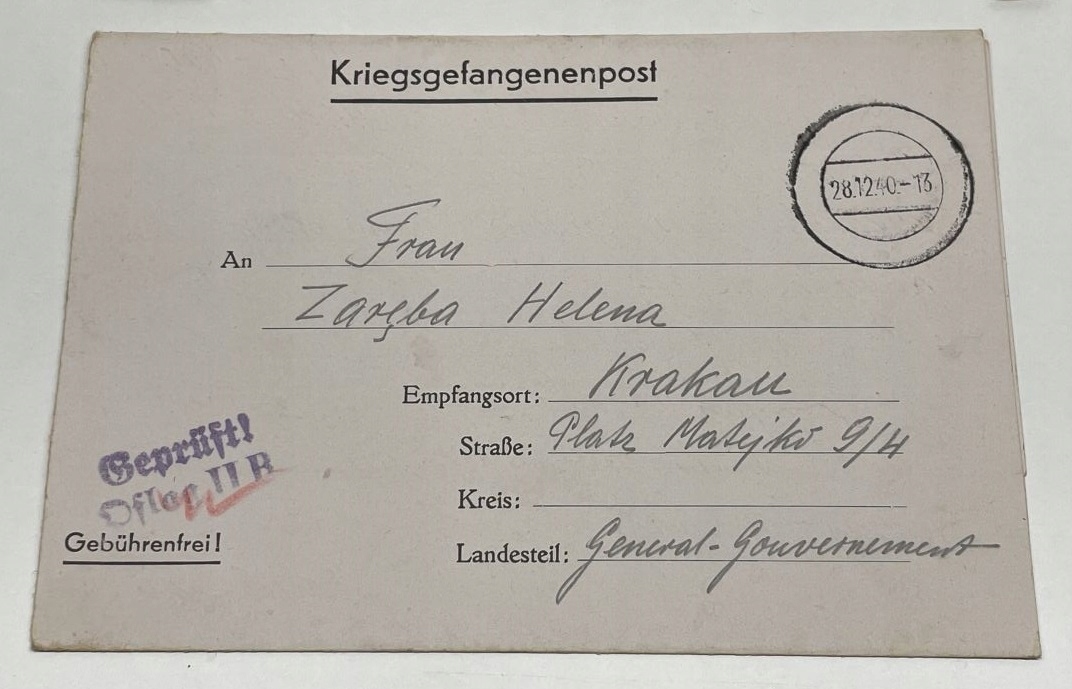 Kriegsgefangenenpost
28.12.40.-13
An Frau
Zaręba Helena
Empfangsort: Krakau
Straße: Platz Matejki 9/4
Kreis:
Landesteil: General-Gouvernement
Geprüft!
Oflag II B
Gebührenfrei!